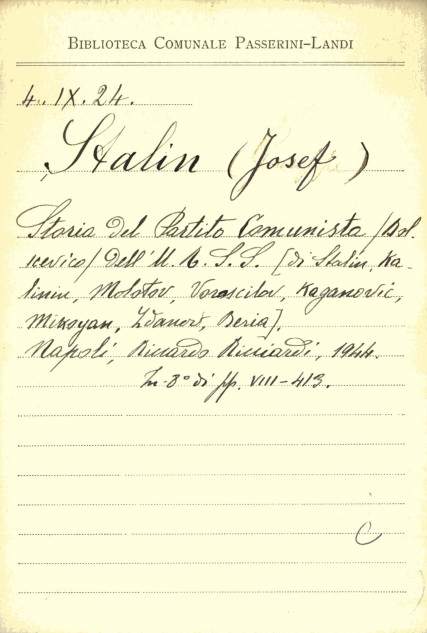 BIBLIOTECA COMUNALE PASSERINI-LANDI
4. IX. 24.
Stalin (Josef)
Storia del Partito Comunista /Bol.
scevico/ dell'U. R. S. S. [di Stalin, Ka-
linin, Molotov, Voroscilov, Kaganovic,
Mikoyan, Zdanov, Beria].
Napoli, Riccardo Ricciardi, 1944.
In-8° di pp. VIII-413.
C